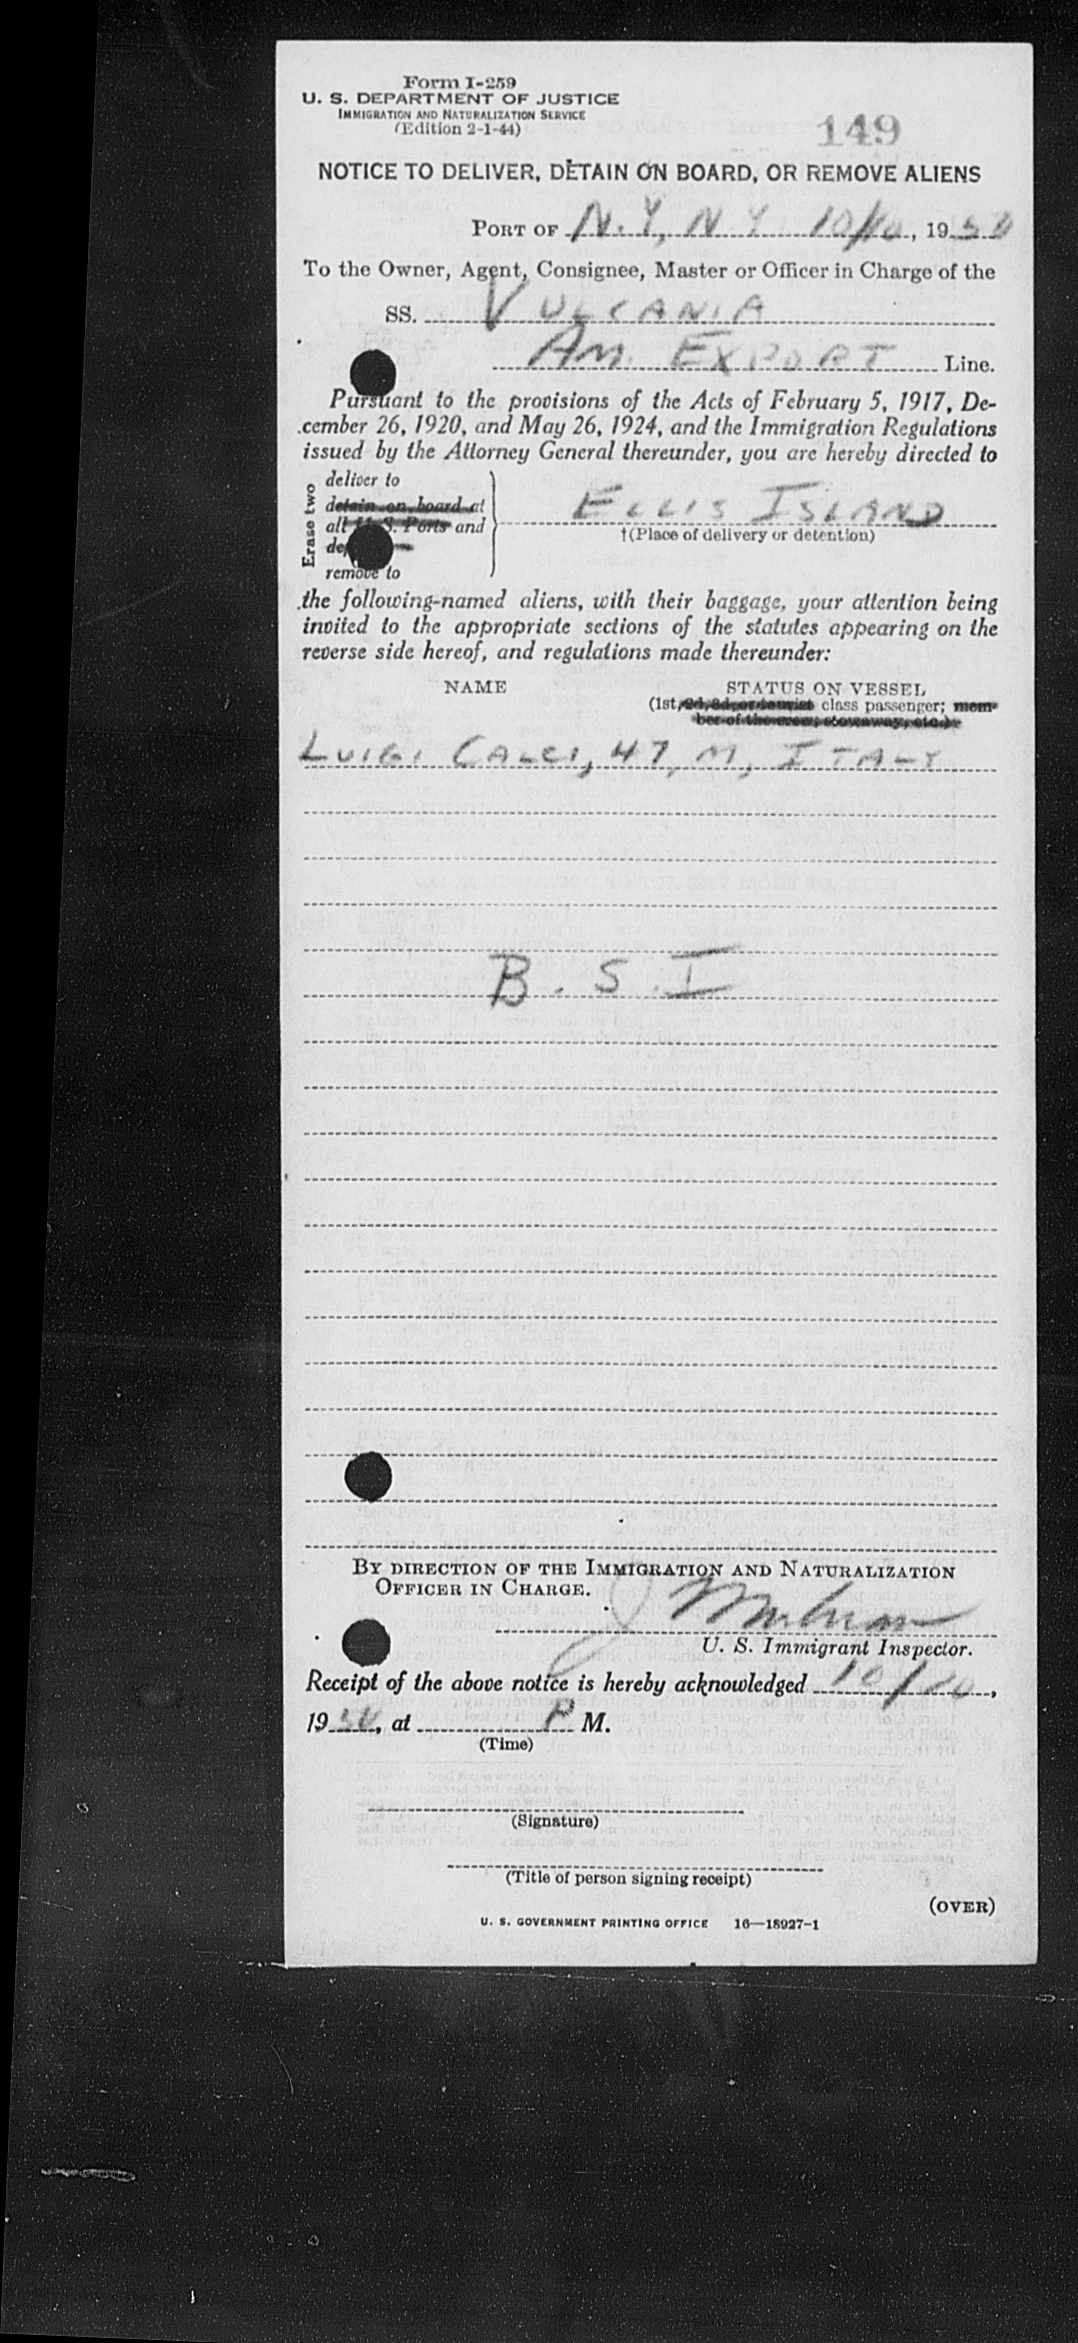 Form I-259
U. S. DEPARTMENT OF JUSTICE
IMMIGRATION AND NATURALIZATION SERVICE
(Edition 2-1-44)
149
NOTICE TO DELIVER, DETAIN ON BOARD, OR REMOVE ALIENS
PORT OF N.Y, N Y 10/10, 1950
To the Owner, Agent, Consignee, Master or Officer in Charge of the
SS. VULCANIA
AM. EXPORT Line.
Pursuant to the provisions of the Acts of February 5, 1917, De-
cember 26, 1920, and May 26, 1924, and the Immigration Regulations
issued by the Attorney General thereunder, you are hereby directed to
Erase two
deliver to
detain on board at
all U. S. Ports and
remove to
ELLIS ISLAND
†(Place of delivery or detention)
the following-named aliens, with their baggage, your attention being
invited to the appropriate sections of the statutes appearing on the
reverse side hereof, and regulations made thereunder:
NAME STATUS ON VESSEL
(1st, 2d, 3d, or tourist class passenger; mem-
ber of the crew, stowaway, etc.)
LUIGI CALCI, 47, M, ITALY
B. S. I
BY DIRECTION OF THE IMMIGRATION AND NATURALIZATION
OFFICER IN CHARGE.
U. S. Immigrant Inspector.
Receipt of the above notice is hereby acknowledged 10/10,
1950, at P M.
(Time)
(Signature)
(Title of person signing receipt)
(OVER)
U. S. GOVERNMENT PRINTING OFFICE 16—18927-1